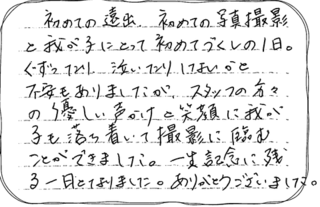 初めての遠出、初めての写真撮影
と我が子にとって初めてづくしの1日。
ぐずったり 泣いたりしないかと
不安もありましたが、スタッフの方々
の優しい声かけと笑顔に我が
子も落ち着いて撮影に臨む
ことができました。一生記念に残
る一日となりました。ありがとうございました。